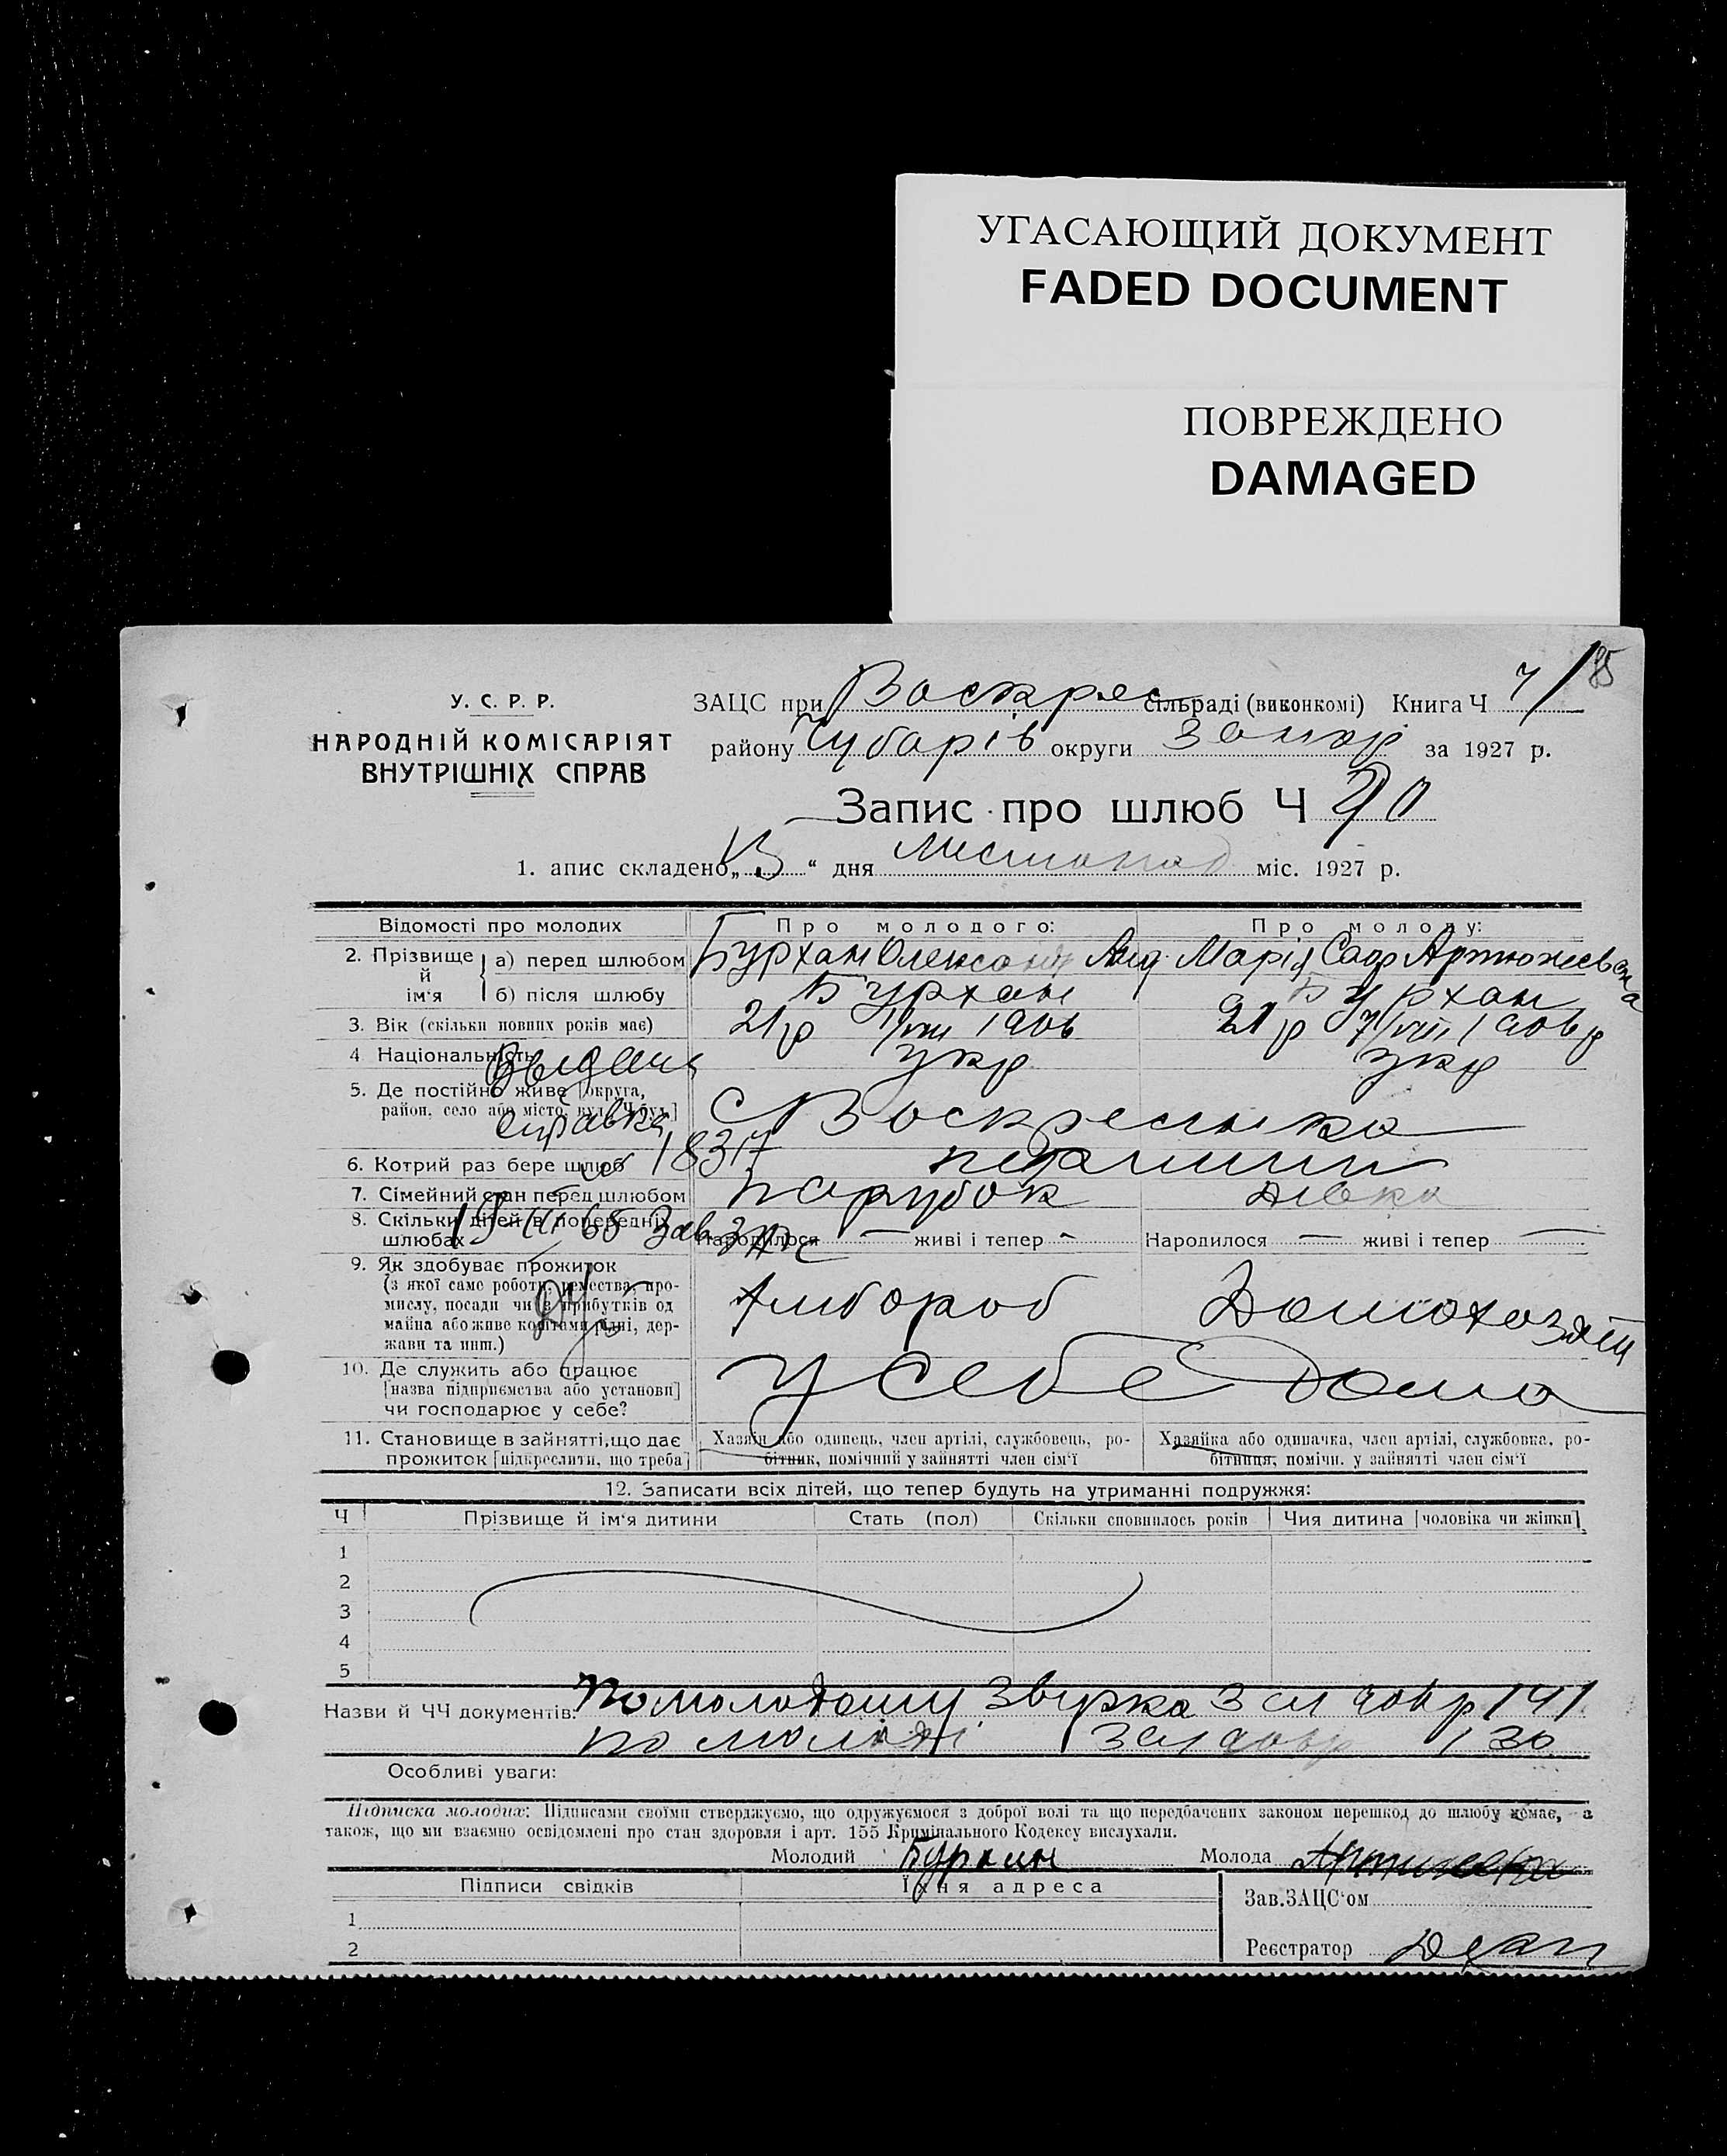 УГАСАЮЩИЙ ДОКУМЕНТ
FADED DOCUMENT
ПОВРЕЖДЕНО
DAMAGED
85
У. С. Р. Р.
НАРОДНІЙ КОМІСАРІЯТ
ВНУТРІШНІХ СПРАВ
ЗАЦС при Воскрес сільраді (виконкомі) Книга Ч
району Чубарів округи Запор за 1927 р.
Запис про шлюб Ч 20
1. апис складено „ 13 “ дня листопад міс. 1927 р.
Відомості про молодих
Про молодого:
Про молоду:
2. Прізвище й ім‘я
а) перед шлюбом Бурхан Олександ Анд. Марія Сидр
б) після шлюбу Бурхан Бурхан
3. Вік (скільки повних років має) 21 р 1/VIII 1906 21 р 7/VIII 1906 р
4 Національність укр укр
5. Де постійно живе [округа,
район, село або місто, вул., Ч буд.]
С Воскресенка
Выдана
справка
1837
6. Котрий раз бере шлюб
7. Сімейний стан перед шлюбом парубок дівка
8. Скільки дітей в попередніх
шлюбах Народилося — живі і тепер - Народилося — живі і тепер —
9. Як здобуває прожиток
(з якої саме роботи, ремества, про-
мислу, посади чи з прибутків од
майна або живе коштами рідні, дер-
жави та инш.)
хлібороб
10. Де служить або працює
[назва підприємства або установи]
чи господарює у себе?
у себе дома
11. Становище в зайнятті, що дає
прожиток [підкреслити, що треба]
Хазяїн або одинець, член артілі, службовець, ро-
бітник, помічний у зайнятті член сім‘ї
Хазяйка або одиначка, член артілі, службовка, ро-
бітниця, помічн. у зайнятті член сім‘ї
12. Записати всіх дітей, що тепер будуть на утриманні подружжя:
Ч Прізвище й ім‘я дитини Стать (пол) Скільки сповнилось років Чия дитина [чоловіка чи жінки]
1
2
3
4
5
Назви й ЧЧ документів: По молодому 141
по молоді 130
Особливі уваги:
Підписка молодих: Підписами своїми стверджуємо, що одружуємося з доброї волі та що передбачених законом перешкод до шлюбу немає, а
також, що ми взаємно освідомлені про стан здоровля і арт. 155 Кримінального Кодексу вислухали.
Молодий Бурхин Молода
Підписи свідків Їхня адреса
Зав.ЗАЦС‘ом
1
2
Реєстратор